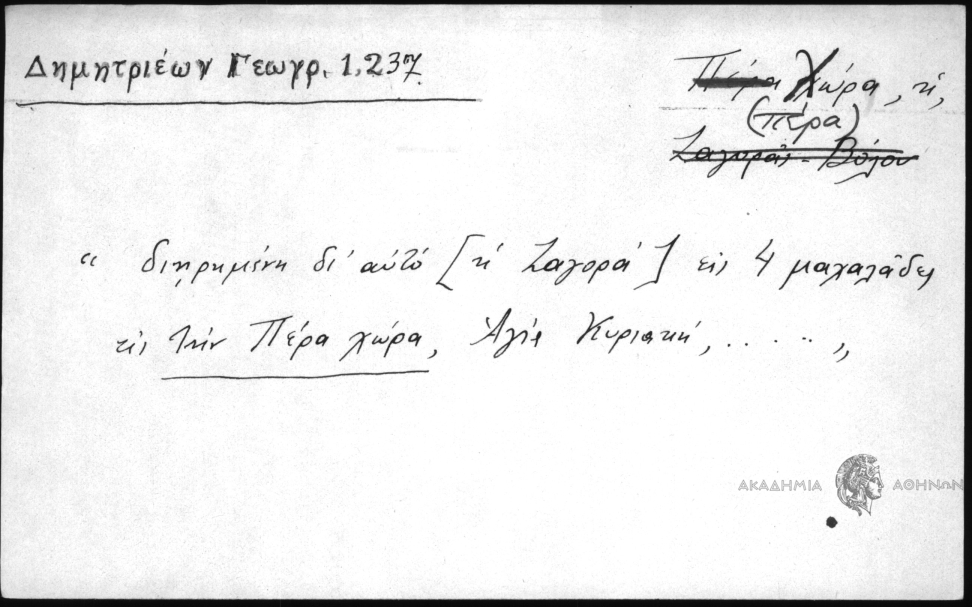 Δημητριέων Γεωγρ. 1,237
Πέρα Χώρα, ἡ,
(πέρα)
Ζαγορᾶς - Βόλου
“ διῃρημένη δι' αὐτό [ἡ Ζαγορά] εἰς 4 μαχαλάδες
εἰς τὴν Πέρα χώρα, Ἁγία Κυριακή, ....... „
ΑΚΑΔΗΜΙΑ ΑΘΗΝΩΝ